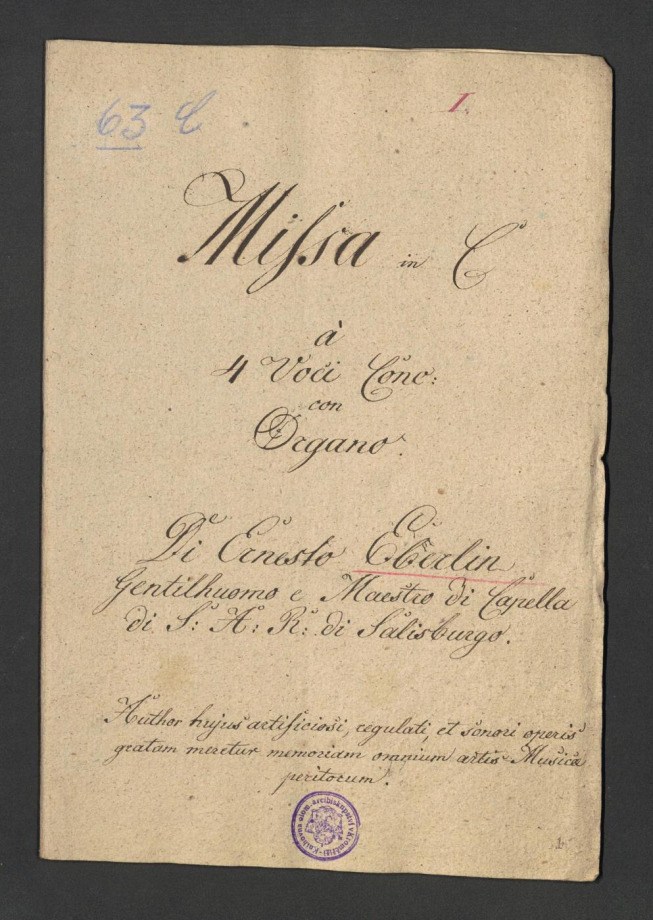 63 C
I.
Missa in C
à
4 Voci Conc:
con
Organo.
Di Ernesto Eberlin
Gentilhuomo e Maestro di Capella
di S: A: R: di Salisburgo.
Author hujus artificiosi, regulati, et sonori operis
gratam meretur memoriam omnium artis Musica
peritorum.
Knihovna olom. Arcibiskupství v Kroměříži
1